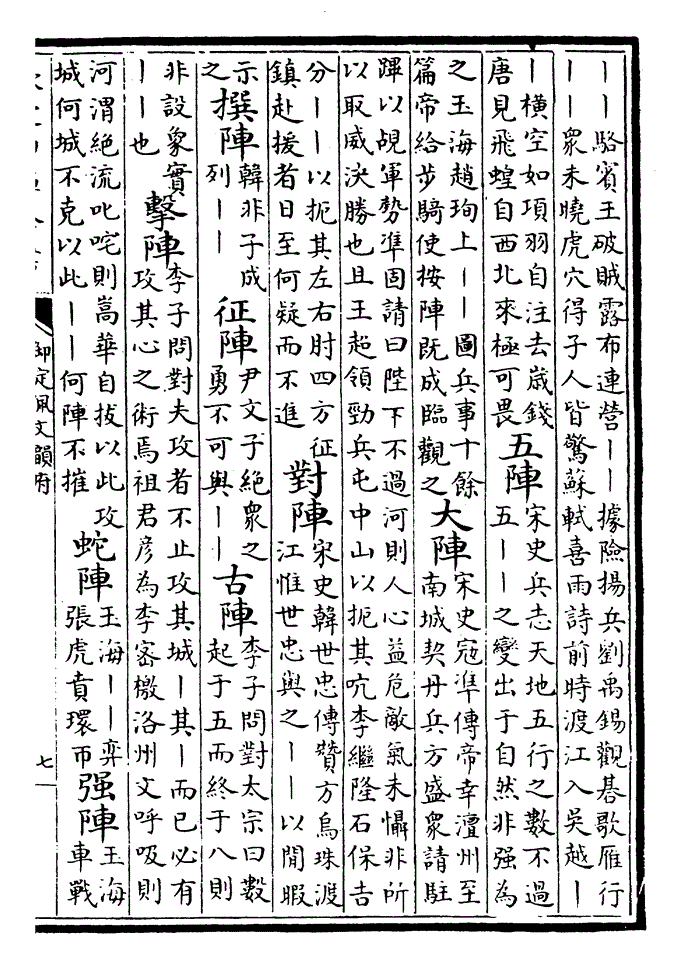 丨丨駱賓王破賊露布連營丨丨據險揚兵劉禹錫觀碁歌雁行
丨丨衆未曉虎穴得子人皆驚蘇軾喜雨詩前時渡江入吳越丨
丨橫空如項羽自注去歲錢
唐見飛蝗自西北來極可畏
五陣
宋史兵志天地五行之數不過
五丨丨之變出于自然非强為
之玉海趙珣上丨丨圖兵事十餘
篇帝給步騎使按陣既成臨觀之
大陣
宋史寇凖傳帝幸澶州至
南城契丹兵方盛衆請駐
蹕以覘軍勢凖固請曰陛下不過河則人心益危敵氣未懾非所
以取威決勝也且王超領勁兵屯中山以扼其吭李繼隆石保吉
分丨丨以扼其左右肘四方征
鎮赴援者日至何疑而不進
對陣
宋史韓世忠傳贊方烏珠渡
江惟世忠與之丨丨以閒暇
示
之
撰陣
韓非子成
列丨丨
征陣
尹文子絶衆之
勇不可與丨丨
古陣
李子問對太宗曰數
起于五而終于八則
非設衆實
丨丨也
擊陣
李子問對夫攻者不止攻其城丨其丨而已必有
攻其心之術焉祖君彦為李密檄洛州文呼吸則
河渭絶流叱咤則嵩華自拔以此攻
城何城不克以此丨丨何陣不摧
蛇陣
玉海丨丨弈
張虎賁環帀
强陣
玉海
車戰
御定佩文韻府
七